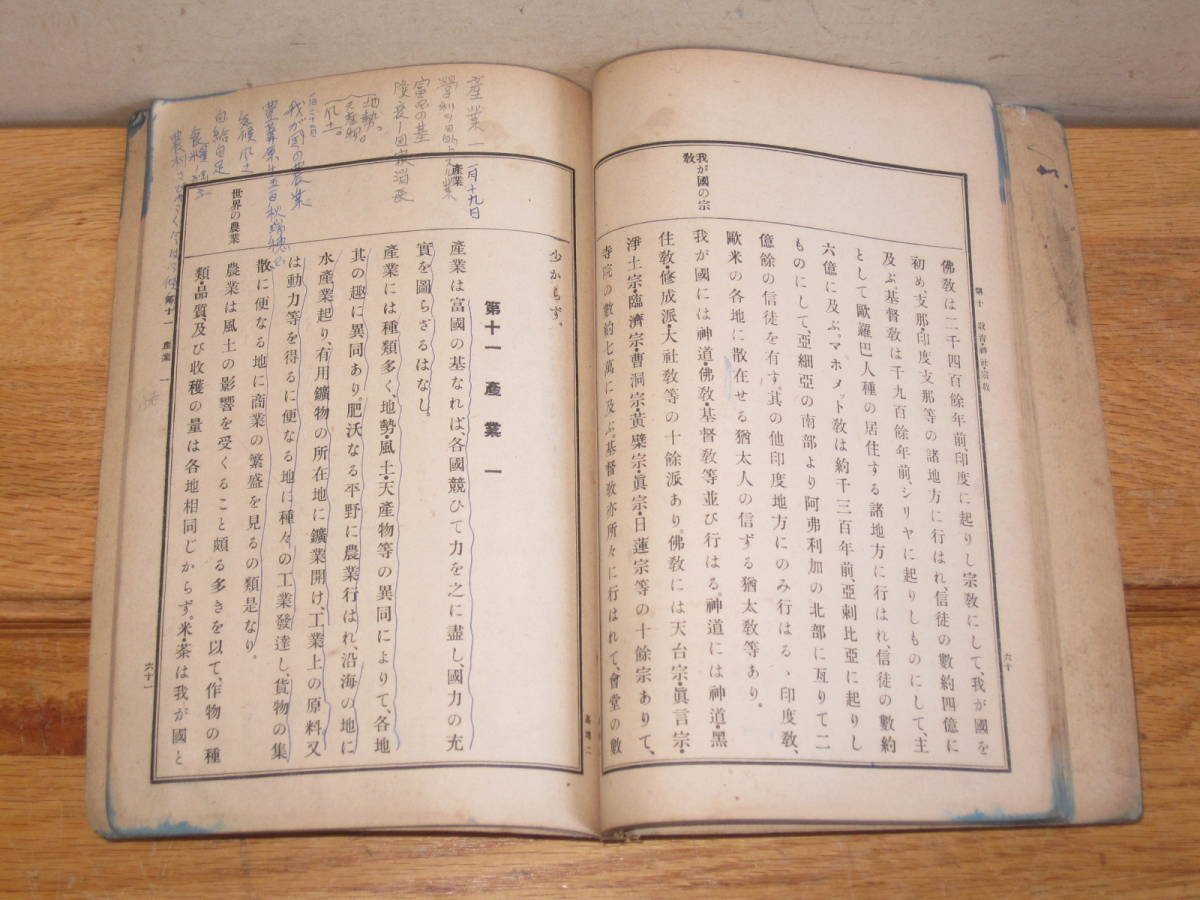 第十 敎育・神社・宗敎
六十
佛敎は二千四百餘年前、印度に起りし宗敎にして、我が國を
初め、支那・印度支那等の諸地方に行はれ、信徒の數約四億に
及ぶ。基督敎は千九百餘年前、シリヤに起りしものにして、主
として歐羅巴人種の居住する諸地方に行はれ、信徒の數約
六億に及ぶ。マホメット敎は約千三百年前、亞剌比亞に起りし
ものにして、亞細亞の南部より阿弗利加の北部に亙りて二
億餘の信徒を有す。其の他印度地方にのみ行はるゝ印度敎、
歐米の各地に散在せる猶太人の信ずる猶太敎等あり。
我が國の宗敎
我が國には神道・佛敎・基督敎等並び行はる。神道には神道・黑
住敎・修成派・大社敎等の十餘派あり。佛敎には天台宗・眞言宗・
淨土宗・臨濟宗・曹洞宗・黃檗宗・眞宗・日蓮宗等の十餘宗ありて、
寺院の數約七萬に及ぶ。基督敎亦所々に行はれて、會堂の數
少からず。
第十一 產業 一
產業
產業は富國の基なれば、各國競ひて力を之に盡し、國力の充
實を圖らざるはなし。
產業には種類多く、地勢・風土・天產物等の異同によりて、各地
其の趣に異同あり。肥沃なる平野に農業行はれ、沿海の地に
水產業起り、有用鑛物の所在地に鑛業開け、工業上の原料又
は動力等を得るに便なる地に種々の工業發達し、貨物の集
散に便なる地に商業の繁盛を見るの類是なり。
世界の農業
農業は風土の影響を受くること頗る多きを以て、作物の種
類・品質、及び收穫の量は各地相同じからず。米・茶は我が國と
第十一 產業 一
六十一
產業一
一月十九日
富國の基
地勢。
天產物。
風土。
我が国の農業
氣候風土
自給自足